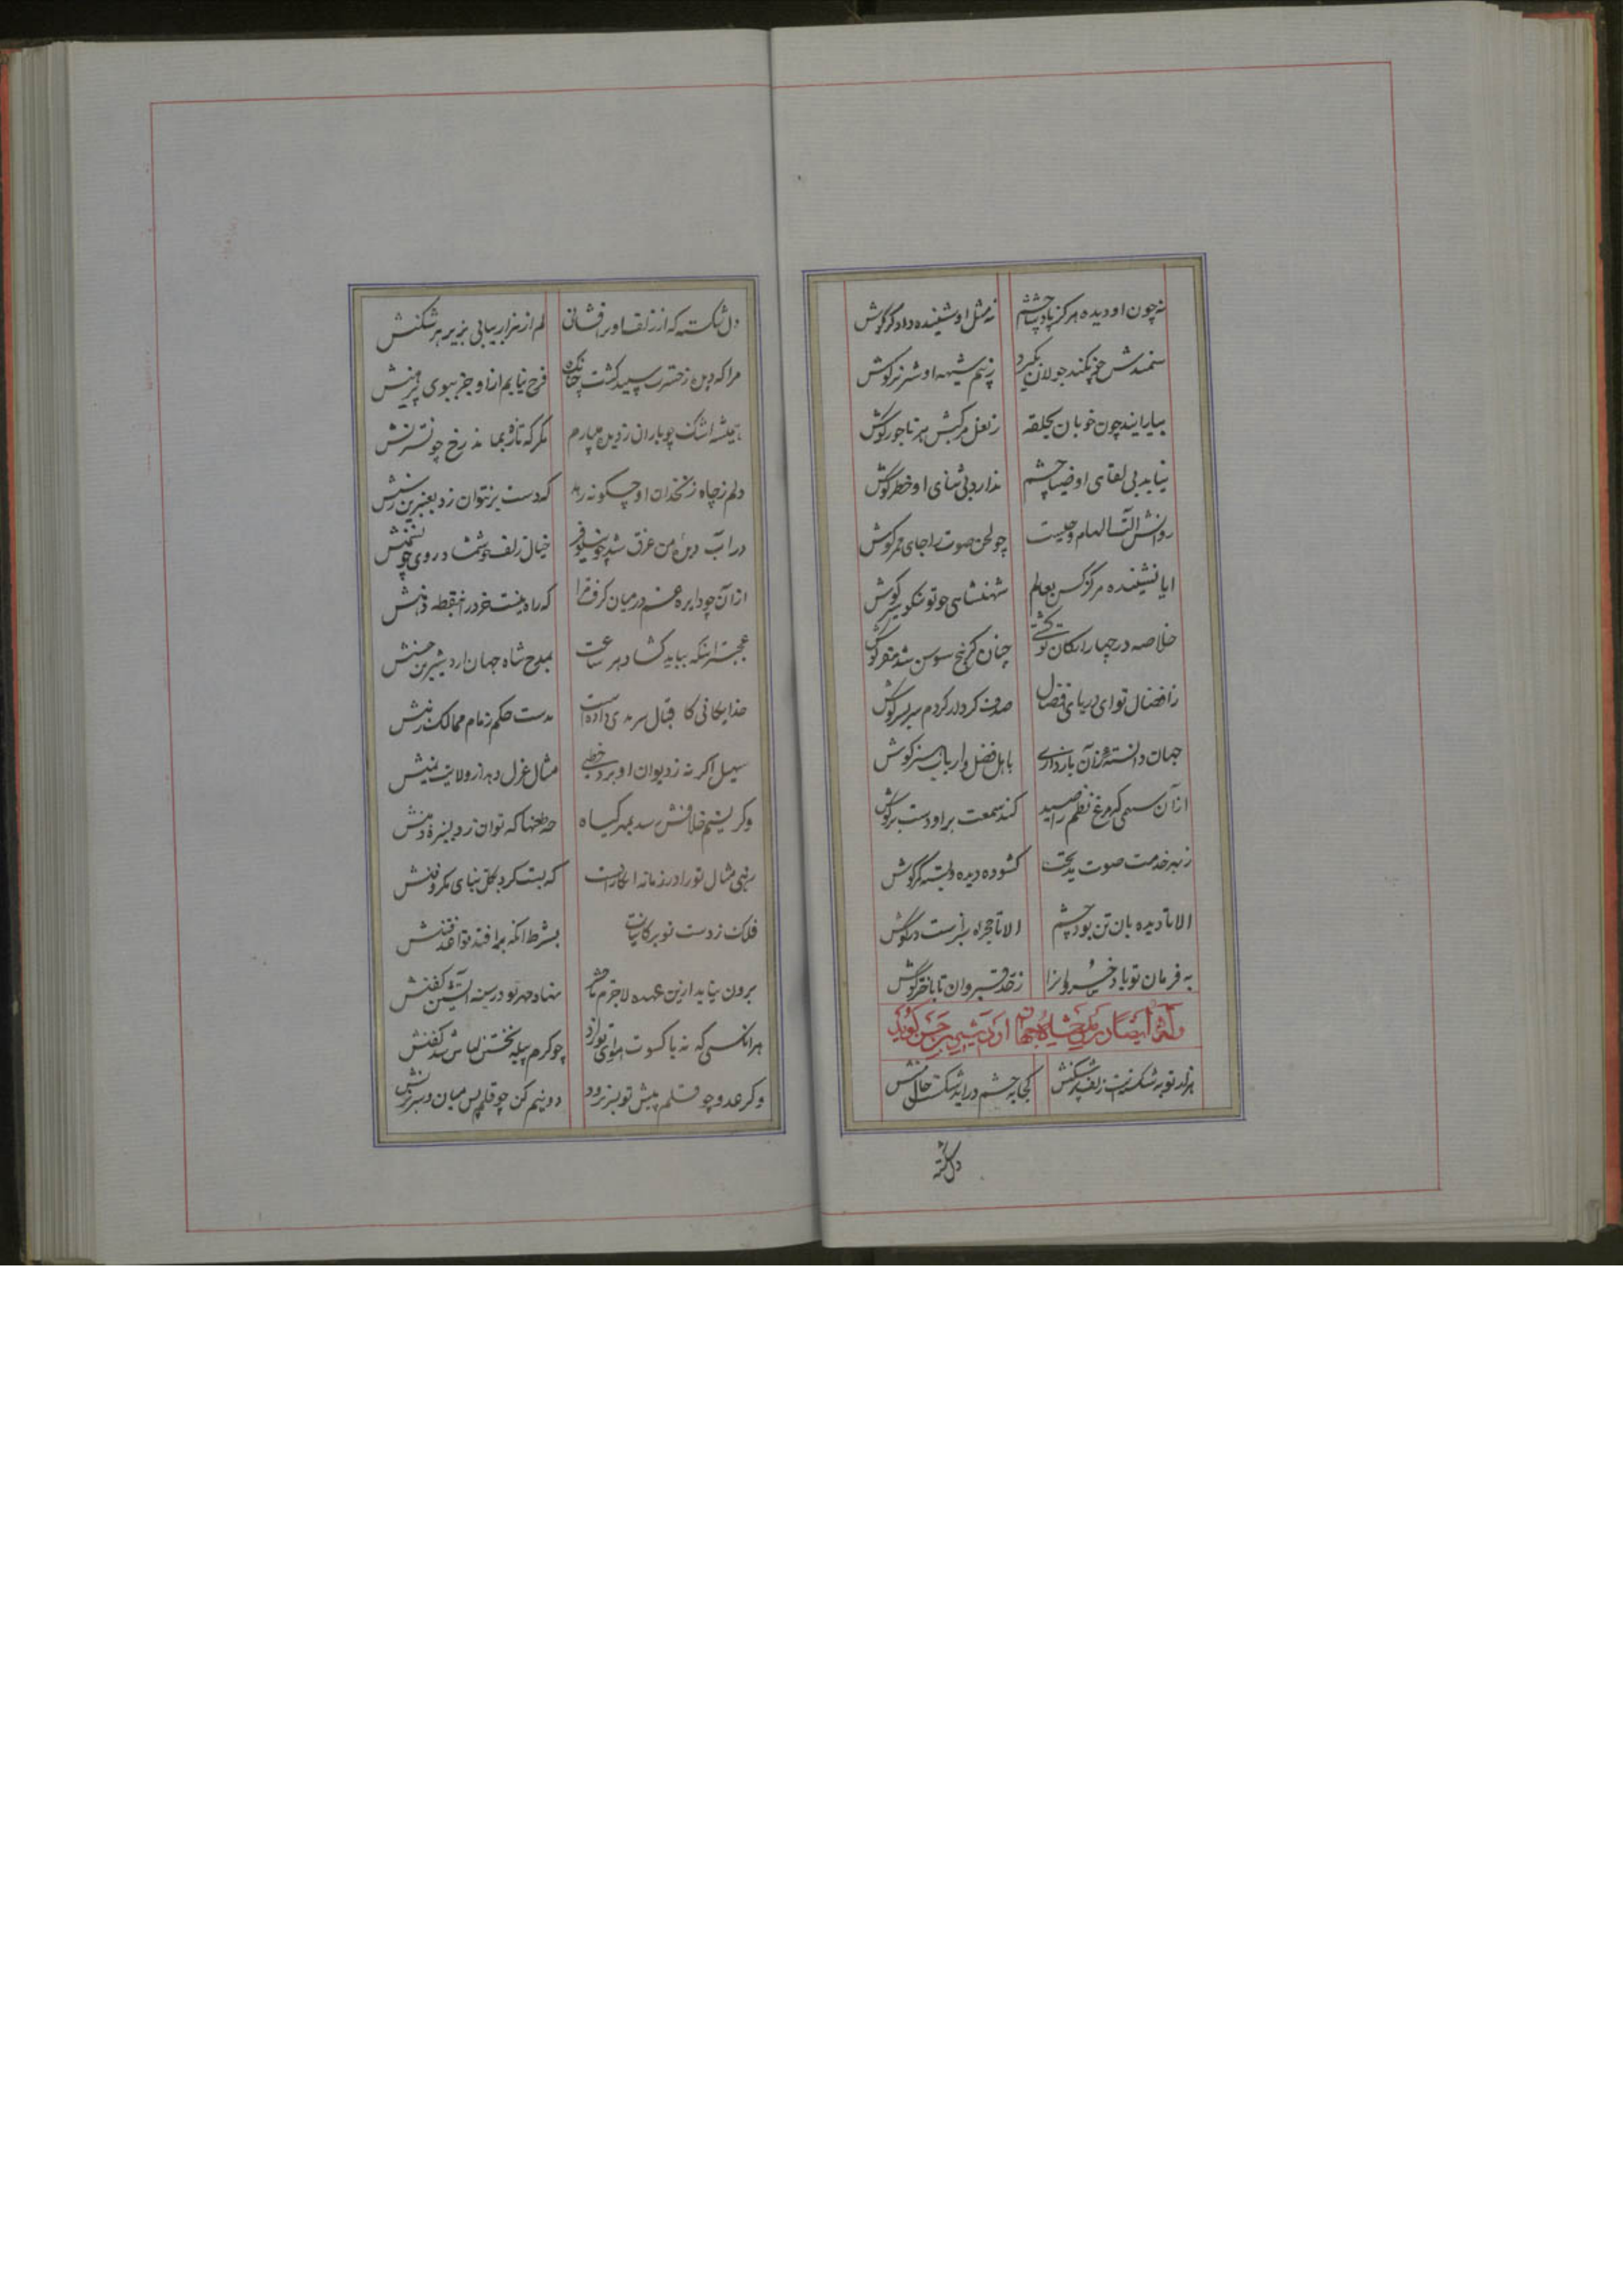 نه چون او دیده هرگز پادشا چشم نه مثل او شنیده دادگر گوش
سمندش چونکند جولان بگیرد ز بیم شیهه او شیر نر گوش
بیارایند چون خوبان بحلقه ز نعل مرکبش هر تاجور گوش
نیابد بی لقای او ضیا چشم ندارد بی ثنای او خطر گوش
روانش آلت الهام و وحیست چو لحن صوت را جای ممر گوش
ایا نشینده هرگز کس بعالم شهنشاهی چو تو نیکو سیر گوش
خلاصه در چهار ارکان تو گشتی چنان کز پنج سو شد مقر گوش
ز افضال تو ای دریای افضال صدف کردار کردم سر بسر گوش
جهان دانسته وز آن بازداری باهل فضل و ارباب هنر گوش
از آن سهمی که مرغ نظم را صید کند سمعت بر او دست برگوش
ز بهر خدمت صوت مدیحت گشوده دیده و بسته کمر گوش
الا تا دیده بان تن بود چشم الا تا حجره راز است در گوش
به فرمان تو باد خسروان را ز حد قیروان تا باختر گوش
وله ایضا در مدح شاه جهان اردشیر بن حسن گوید
هزار توبه شکستست زلف پر شکنش کجا به چشم در آید شکست حال منش
دل شکسته
دل شکسته که از زلف او بر افشانی لم از هزار بیابی بزیر هر شکنش
مرا که دیده ز حسرت سپید گشت چنانک فرح نیابم از او جز ببوی پیرهنش
همیشه اشک چو باران ز دیده میبارم مگر که تازه بماند رخ چو نسترنش
دلم ز چاه زنخدان او چگونه رهد که دست بر نتوان زد بعنبرین رسنش
در آب دیده من غرق شد چو نیلوفر خیال زلف چو شمشاد و روی چو سمنش
از آن چو دایره غم در میان گرفت مرا که راه نیست خرد را بنقطه دهنش
عجبتر اینکه بیاید گشاد هر ساعت بمدح شاه جهان اردشیر بن حسنش
خدایگانی کاقبال سرمدی داده است بدست حکم زمام ممالک زمنش
سهیل اگر نه ز دیوان او برد خطی مثال عزل دهد از ولایت یمنش
وگر نسیم خلافش رسد بمهر گیاه چه طعنها که توان زد بسبزه دمنش
زهی مثال تو را در زمانه آن کارست که پست کرد بکل بنای مکر و فنش
فلک ز دست تو بر کاینات بشرط آنکه بر افتد قواعد فتنش
برون نیاید ازین عهده لاجرم تا حشر نهاد مهر تو در سینه آتشین کفنش
هر آنکسی که نه با کسوت هوای تو زاد چو کرم پیله نخستین لباس شد کفنش
وگر عدو چو قلم پیش تو بسر نرود دو نیم کن چو قلم پس میان و سر بزنش